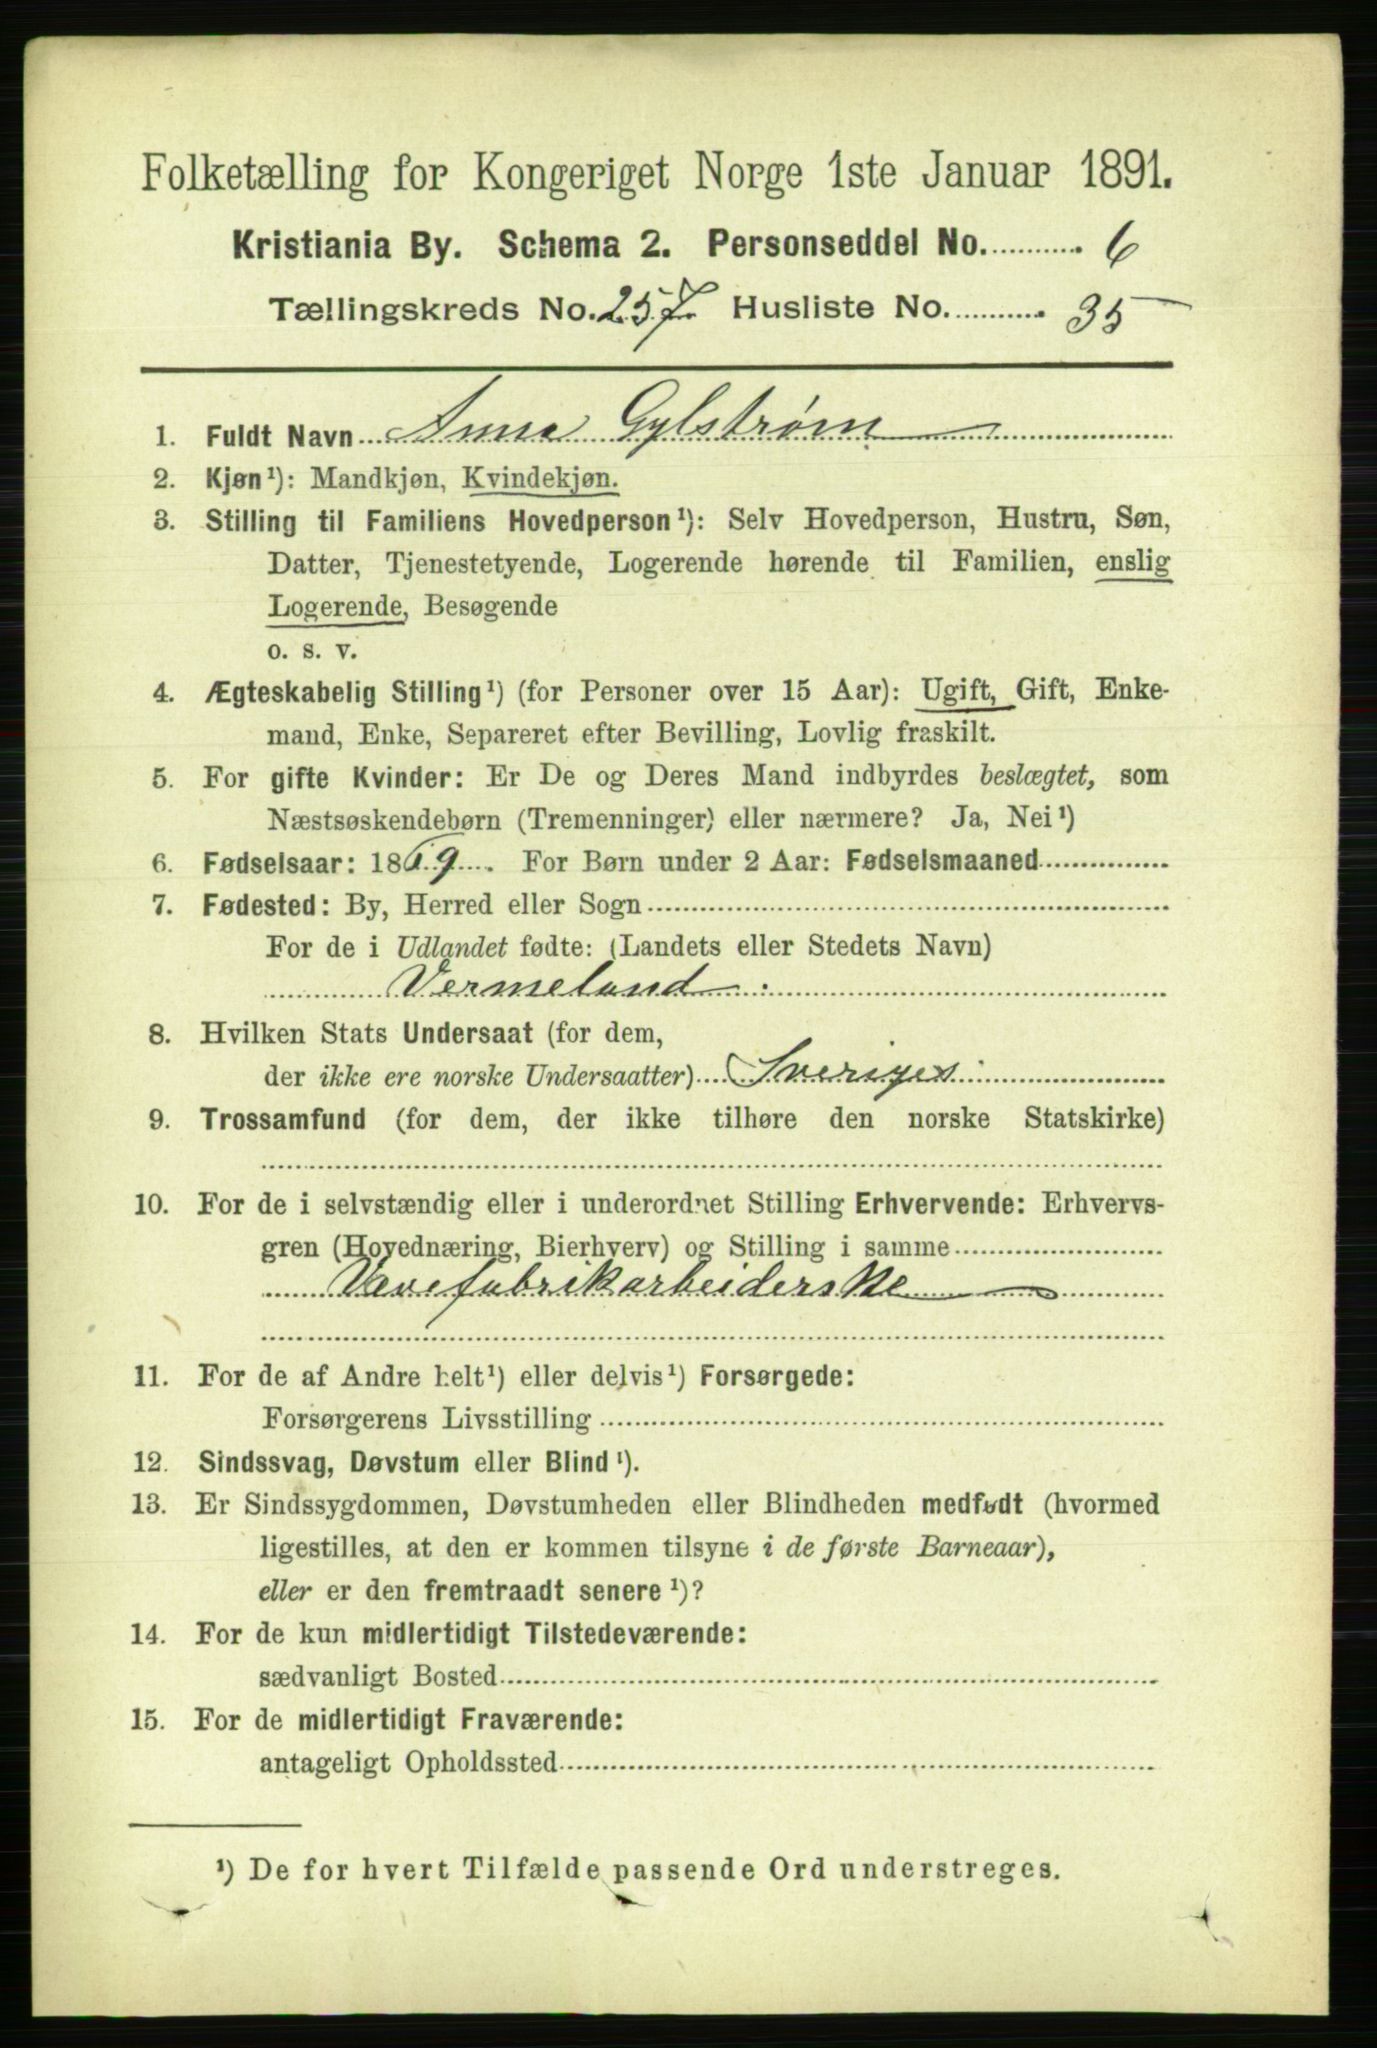 Folketælling for Kongeriget Norge 1ste Januar 1891.
Kristiania By. Schema 2. Personseddel No. 6
Tællingskreds No. 257 Husliste No. 35
1. Fuldt Navn Anna Gylstrøm
2. Kjøn¹): Mandkjøn, Kvindekjøn.
3. Stilling til Familiens Hovedperson¹): Selv Hovedperson, Hustru, Søn,
Datter, Tjenestetyende, Logerende hørende til Familien, enslig
Logerende, Besøgende
o. s. v.
4. Ægteskabelig Stilling¹) (for Personer over 15 Aar): Ugift, Gift, Enke-
mand, Enke, Separeret efter Bevilling, Lovlig fraskilt.
5. For gifte Kvinder: Er De og Deres Mand indbyrdes beslægtet, som
Næstsøskendebørn (Tremenninger) eller nærmere? Ja, Nei¹)
6. Fødselsaar: 1869. For Børn under 2 Aar: Fødselsmaaned
7. Fødested: By, Herred eller Sogn
For de i Udlandet fødte: (Landets eller Stedets Navn)
Vermeland
8. Hvilken Stats Undersaat (for dem,
der ikke ere norske Undersaatter) Sveriges
9. Trossamfund (for dem, der ikke tilhøre den norske Statskirke)
10. For de i selvstændig eller i underordnet Stilling Erhvervende: Erhvervs-
gren (Hovednæring, Bierhverv) og Stilling i samme
Vævefabrikarbeiderske
11. For de af Andre helt¹) eller delvis¹) Forsørgede:
Forsørgerens Livsstilling
12. Sindssvag, Døvstum eller Blind¹).
13. Er Sindssygdommen, Døvstumheden eller Blindheden medfødt (hvormed
ligestilles, at den er kommen tilsyne i de første Barneaar),
eller er den fremtraadt senere¹)?
14. For de kun midlertidigt Tilstedeværende:
sædvanligt Bosted
15. For de midlertidigt Fraværende:
antageligt Opholdssted
¹) De for hvert Tilfælde passende Ord understreges.